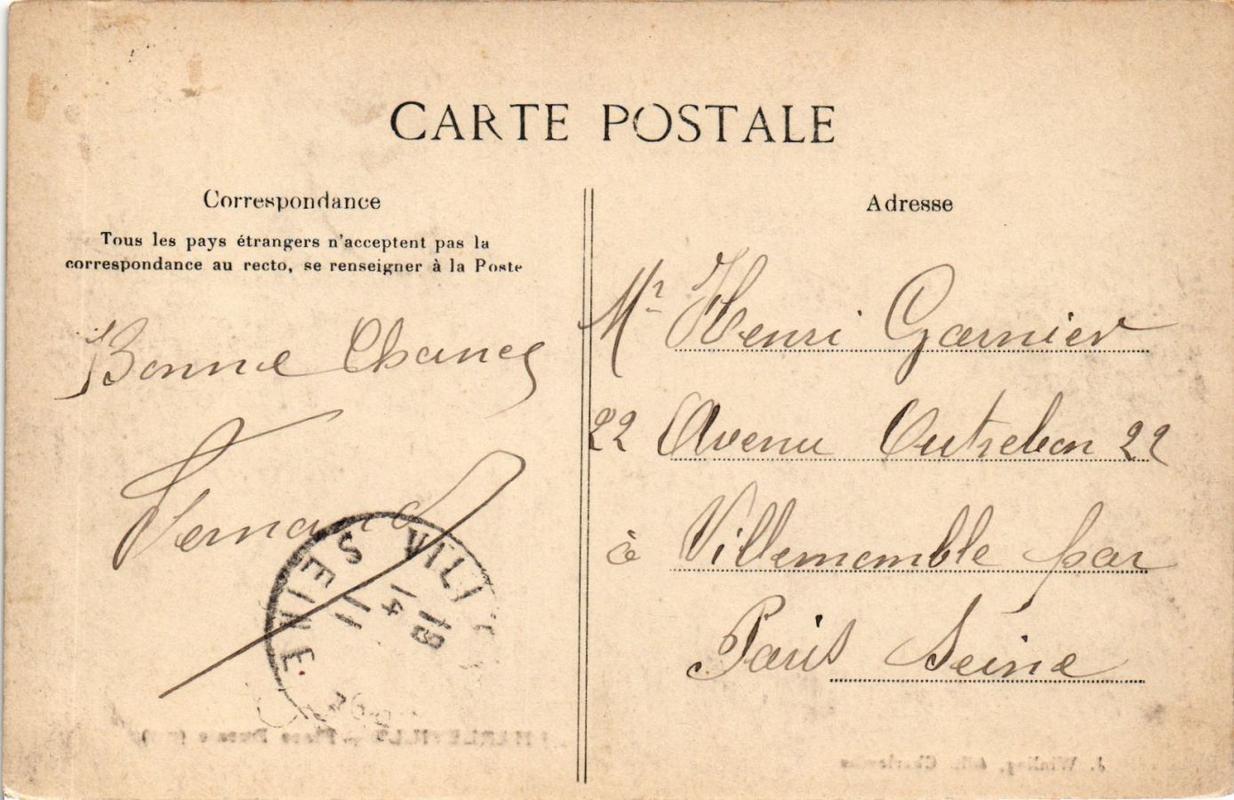 CARTE POSTALE
Correspondance
Tous les pays étrangers n'acceptent pas la
correspondance au recto, se renseigner à la Poste
Bonne Chance
Fernand
SEINE
VILL
18
14
11
Adresse
Mr Henri Garnier
22 Avenu Outrebon 22
à Villemomble par
Paris Seine
J. Winling, édit. Charleville
CHARLEVILLE - Place Ducale